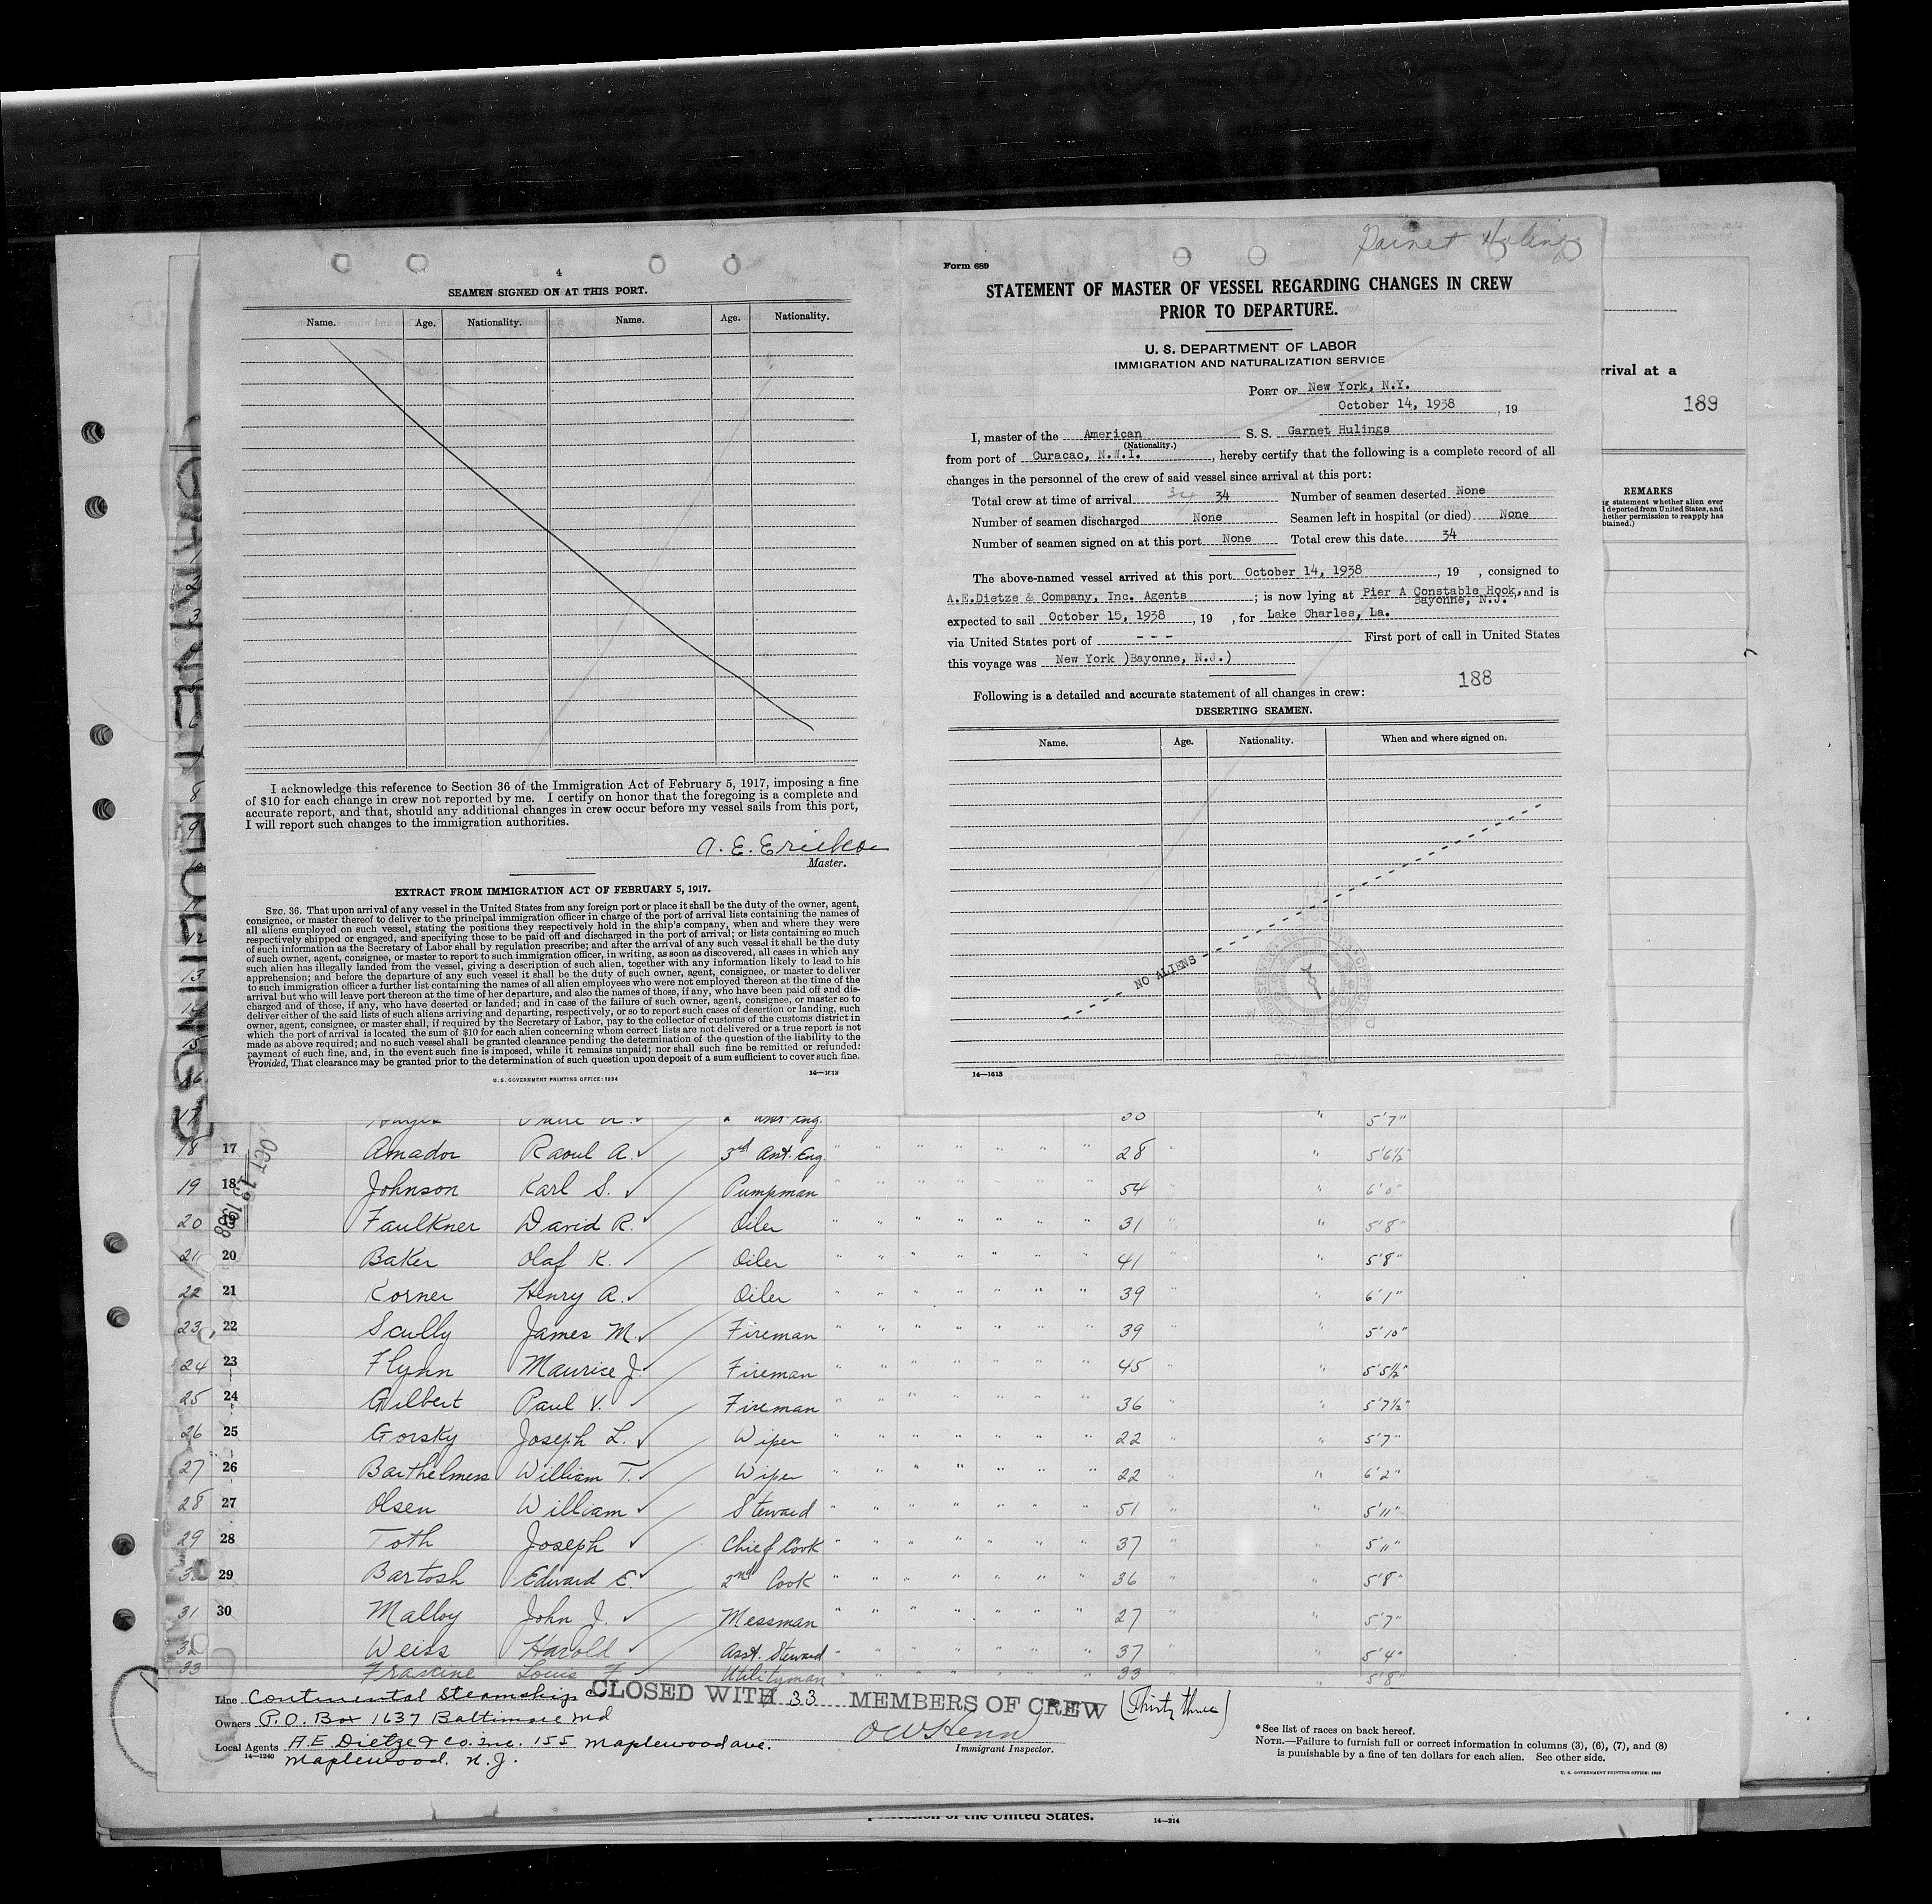 4
SEAMEN SIGNED ON AT THIS PORT.
Name. Age. Nationality. Name. Age. Nationality.
I acknowledge this reference to Section 36 of the Immigration Act of February 5, 1917, imposing a fine
of $10 for each change in crew not reported by me. I certify on honor that the foregoing is a complete and
accurate report, and that, should any additional changes in crew occur before my vessel sails from this port,
I will report such changes to the immigration authorities.
Master.
EXTRACT FROM IMMIGRATION ACT OF FEBRUARY 5, 1917.
SEC. 36. That upon arrival of any vessel in the United States from any foreign port or place it shall be the duty of the owner, agent,
consignee, or master thereof to deliver to the principal immigration officer in charge of the port of arrival lists containing the names of
all aliens employed on such vessel, stating the positions they respectively hold in the ship's company, when and where they were
respectively shipped or engaged, and specifying those to be paid off and discharged in the port of arrival; or lists containing so much
of such information as the Secretary of Labor shall by regulation prescribe; and after the arrival of any such vessel it shall be the duty
of such owner, agent, consignee, or master to report to such immigration officer, in writing, as soon as discovered, all cases in which any
such alien has illegally landed from the vessel, giving a description of such alien, together with any information likely to lead to his
apprehension; and before the departure of any such vessel it shall be the duty of such owner, agent, consignee, or master to deliver
to such immigration officer a further list containing the names of all alien employees who were not employed thereon at the time of the
arrival but who will leave port thereon at the time of her departure, and also the names of those, if any, who have been paid off and dis-
charged and of those, if any, who have deserted or landed; and in case of the failure of such owner, agent, consignee, or master so to
deliver either of the said lists of such aliens arriving and departing, respectively, or so to report such cases of desertion or landing, such
owner, agent, consignee, or master shall, if required by the Secretary of Labor, pay to the collector of customs of the customs district in
which the port of arrival is located the sum of $10 for each alien concerning whom correct lists are not delivered or a true report is not
made as above required; and no such vessel shall be granted clearance pending the determination of the question of the liability to the
payment of such fine, and, in the event such fine is imposed, while it remains unpaid; nor shall such fine be remitted or refunded:
Provided, That clearance may be granted prior to the determination of such question upon deposit of a sum sufficient to cover such fine.
U. S. GOVERNMENT PRINTING OFFICE: 1934
14—1613
Garnet Hulings
Form 689
STATEMENT OF MASTER OF VESSEL REGARDING CHANGES IN CREW
PRIOR TO DEPARTURE.
U. S. DEPARTMENT OF LABOR
IMMIGRATION AND NATURALIZATION SERVICE
PORT OF New York, N.Y.
October 14, 1938 , 19
I, master of the American S. S. Garnet Hulings
(Nationality.)
from port of Curacao, N.W.I. , hereby certify that the following is a complete record of all
changes in the personnel of the crew of said vessel since arrival at this port:
Total crew at time of arrival 34 34 Number of seamen deserted None
Number of seamen discharged None Seamen left in hospital (or died) None
Number of seamen signed on at this port None Total crew this date 34
The above-named vessel arrived at this port October 14, 1938 , 19 , consigned to
A.E.Dietze & Company, Inc. Agents ; is now lying at Pier A Constable Hook, and is
Bayonne, N.J.
expected to sail October 15, 1938 , 19 , for Lake Charles, La.
via United States port of - - - First port of call in United States
this voyage was New York )Bayonne, N.J.)
188
Following is a detailed and accurate statement of all changes in crew:
DESERTING SEAMEN.
Name. Age. Nationality. When and where signed on.
NO ALIENS
14—1613
rrival at a
189
REMARKS
g statement whether alien ever
deported from United States, and
hether permission to reapply has
btained.)
GARNET HULINGS
OCT 19 1938
17 5'7"
18 17 Amador Raoul A. 3rd Asst. Eng. " " " " " " 28 " " 5'6½"
19 18 Johnson Karl S. Pumpman " " " " " " 54 " " 6'0"
20 19 Faulkner David R. Oiler " " " " " " 31 " " 5'8"
21 20 Baker Olaf K. Oiler " " " " " " 41 " " 5'8"
22 21 Korner Henry A. Oiler " " " " " " 39 " " 6'1"
23 22 Scully James M. Fireman " " " " " " 39 " " 5'10"
24 23 Flynn Maurice J. Fireman " " " " " " 45 " " 5'5½"
25 24 Gilbert Paul V. Fireman " " " " " " 36 " " 5'7½"
26 25 Gorsky Joseph L. Wiper " " " " " " 22 " " 5'7"
27 26 Barthelmess William T. Wiper " " " " " " 22 " " 6'2"
28 27 Olsen William Steward " " " " " " 51 " " 5'11"
29 28 Toth Joseph Chief Cook " " " " " " 37 " " 5'11"
29 Bartosh Edward E. 2nd Cook " " " " " " 36 " " 5'8"
31 30 Malloy John J. Messman " " " " " " 27 " " 5'7"
32 Weiss Harold Asst. Steward " " " " " " 37 " " 5'4"
33 Frascine Louis F. Utilityman " " " " " " 33 " " 5'8"
Line Continental Steamship Co CLOSED WITH 33 MEMBERS OF CREW (Thirty three)
Owners P.O. Box 1637 Baltimore Md
Local Agents A.E. Dietze & Co. Inc. 155 Maplewood ave.
14—1240
Maplewood. N.J.
Immigrant Inspector.
*See list of races on back hereof.
NOTE.—Failure to furnish full or correct information in columns (3), (6), (7), and (8)
is punishable by a fine of ten dollars for each alien. See other side.
of the United States.
14—214